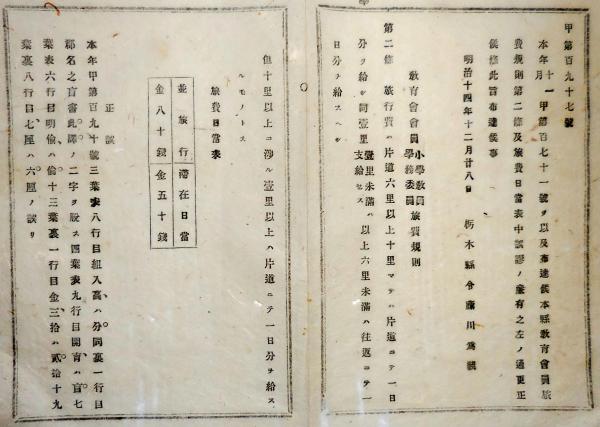 甲第百九十七號
本年十一月甲第百七十一號ヲ以及布達候本縣教育會員旅
費規則第二條及旅費日當表中誤謬ノ廉有之左ノ通更正
候條此旨布達候事
明治十四年十二月廿八日 栃木縣令藤川爲親
教育會會員小學教員學務委員旅費規則
第二條 旅行費ハ片道六里以上十里マテハ片道ニテ一日
分ヲ給シ同壹里壹里未滿ハ支給セス以上六里未滿ハ往返ニテ一
日分ヲ給スヘシ
但十里以上ニ渉ル壹里以上ハ片道ニテ一日分ヲ給ス
ルモノトス
旅費日當表
並旅行滯在日當
金八十錢金五十錢
正誤
本年甲第百九十號三葉表八行目組入高ハ分同裏一行目
郡名之肓書此際ノ二字ヲ脱ス四葉表九行目開育ハ肓七
葉表六行目明倫ハ倫十三葉裏一行目金三拾ハ貳拾十九
葉裏八行目七厘ハ六厘ノ誤リ